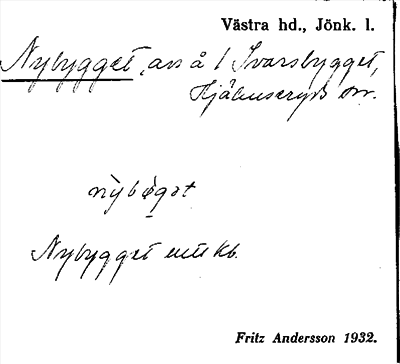 Västra hd., Jönk. l.
Nybygget, avs å 1 Ivarsbygget,
Kjäbuseryd sn.
nỳbøgət
Nybygget utt kb.
Fritz Andersson 1932.